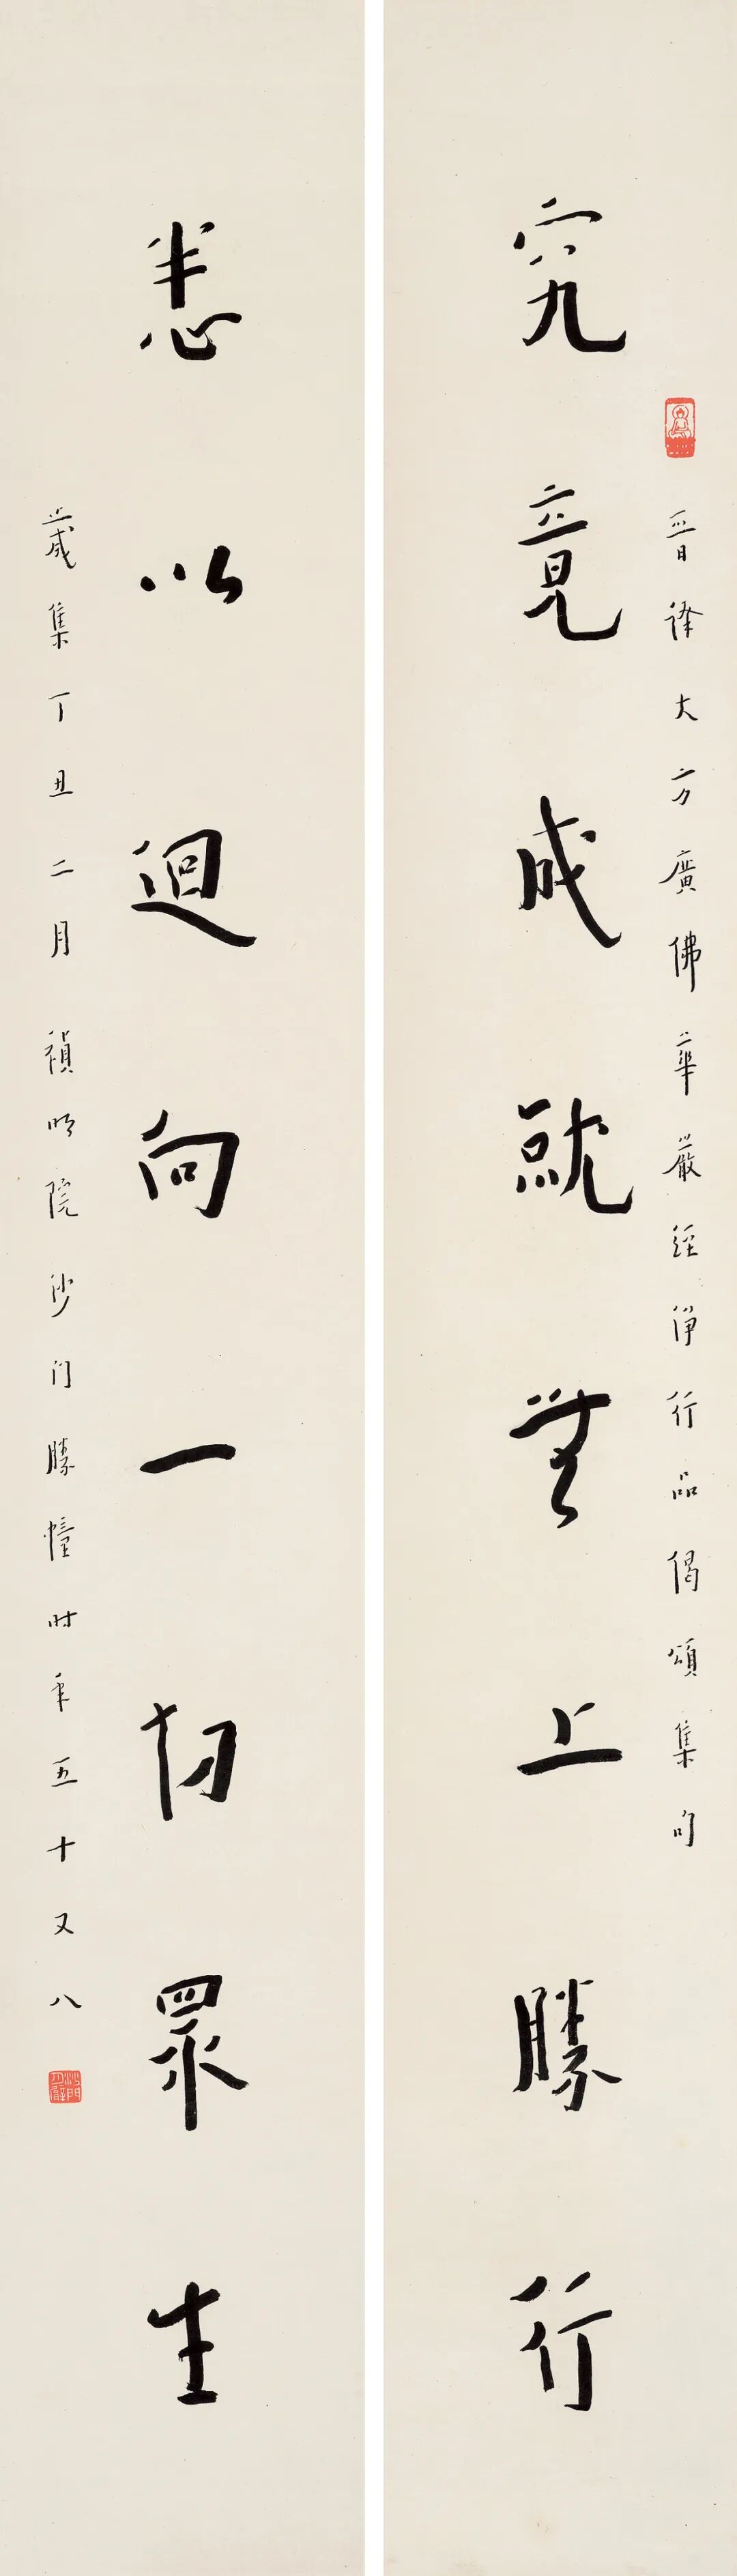 晉譯大方廣佛華嚴經淨行品偈頌集句
究竟成就無上勝行
悉以迴向一切眾生
歲集丁丑二月禎明院沙門勝幢時年五十又八